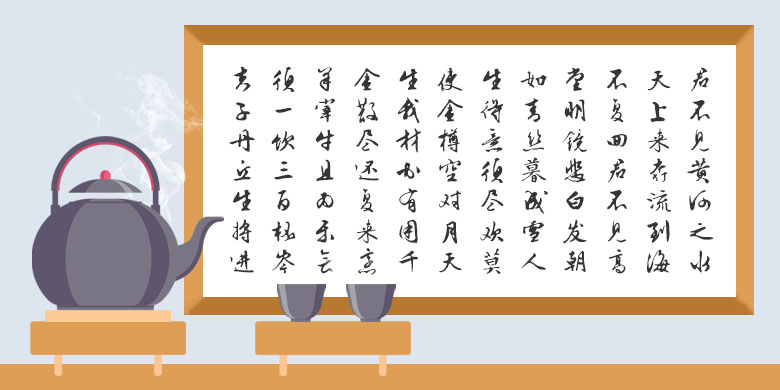 君不见黄河之水
天上来奔流到海
不复回君不见高
堂明镜悲白发朝
如青丝暮成雪人
生得意须尽欢莫
使金樽空对月天
生我材必有用千
金散尽还复来烹
羊宰牛且为乐会
须一饮三百杯岑
夫子丹丘生将进